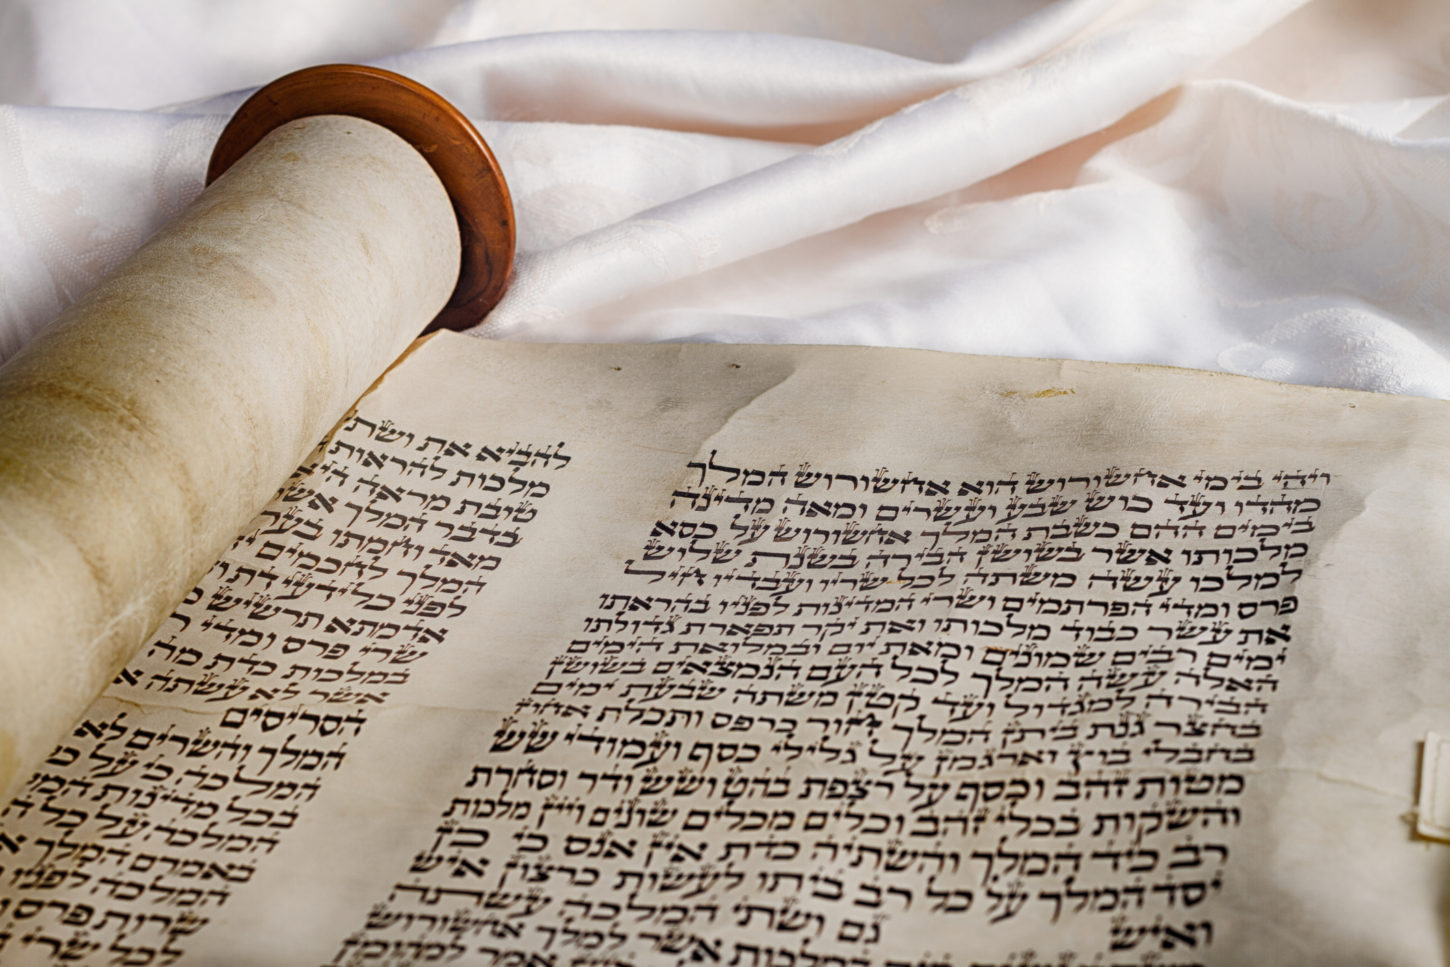 ויהי בימי אחשורוש הוא אחשורוש המלך
מהדו ועד כוש שבע ועשרים ומאה מדינה
בימים ההם כשבת המלך אחשורוש על כסא
מלכותו אשר בשושן הבירה בשנת שלוש
למלכו עשה משתה לכל שריו ועבדיו חיל
פרס ומדי הפרתמים ושרי המדינות לפניו בהראתו
את עשר כבוד מלכותו ואת יקר תפארת גדולתו
ימים רבים שמונים ומאת יום ובמלואת הימים
האלה עשה המלך לכל העם הנמצאים בשושן
הבירה למגדול ועד קטן משתה שבעת ימים
בחצר גנת ביתן המלך חור כרפס ותכלת אחוז
בחבלי בוץ וארגמן על גלילי כסף ועמודי שש
מטות זהב וכסף על רצפת בהט ושש ודר וסחרת
והשקות בכלי זהב וכלים מכלים שונים ויין מלכות
רב כיד המלך והשתיה כדת אין אנס כי כן
יסד המלך על כל רב ביתו לעשות כרצון איש
ואיש גם ושתי המלכה עשתה
מלכות אשר למלך אחשורוש
אמר למהומן
להביא את ושתי
מלכות להראות
טובת מראה היא
בדבר המלך אשר
מאד וחמתו בערה
המלך לחכמים
לפני כל ידעי דת
אדמתא תרשיש
שרי פרס ומדי
במלכות כדת מה
אשר לא עשתה
הסריסים
המלך והשרים לא
המלכה כי על
בכל מדינות
המלכה על כל
באמרם המלך
המלכה לפניו
שרות פרס
לכל שרי